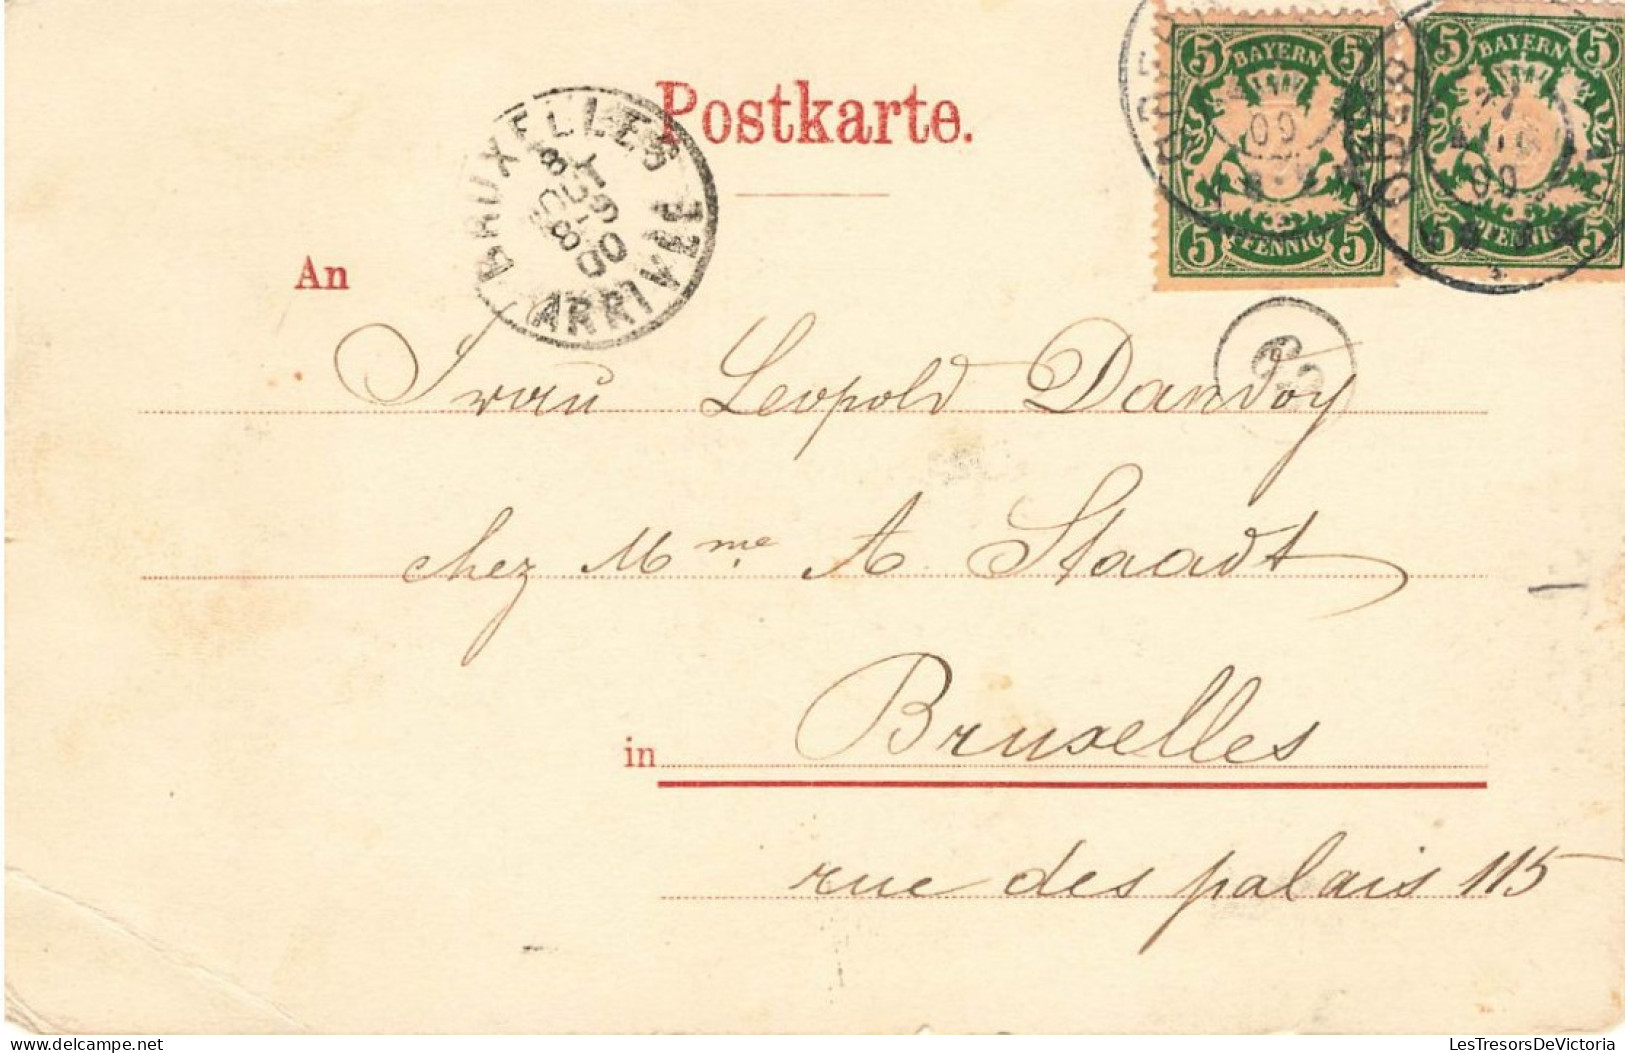 Postkarte.
BAYERN
5 5
5 PFENNIG 5
BAYERN
5 5
5 PFENNIG 5
BRUXELLES
8
OCT
8-19
00
ARRIVÉE
An
Frau Leopold Dandoy
chez Mme A Staadt
in Bruxelles
rue des palais 115
LesTresorsDeVictoria